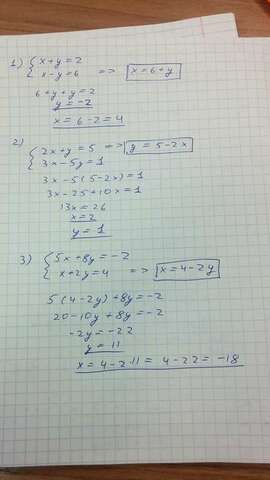 1) { x+y=2
x-y=6 => x=6+y
6+y+y=2
y=-2
x=6-2=4
2) { 2x+y=5 => y=5-2x
3x-5y=1
3x-5(5-2x)=1
3x-25+10x=1
13x=26
x=2
y=1
3) { 5x+8y=-2
x+2y=4 => x=4-2y
5(4-2y)+8y=-2
20-10y+8y=-2
-2y=-22
y=11
x=4-2·11=4-22=-18